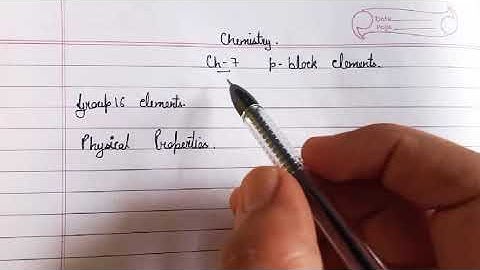 Date
Page
Chemistry.
Ch-7 p-block elements.
Group 16 elements.
Physical Properties.